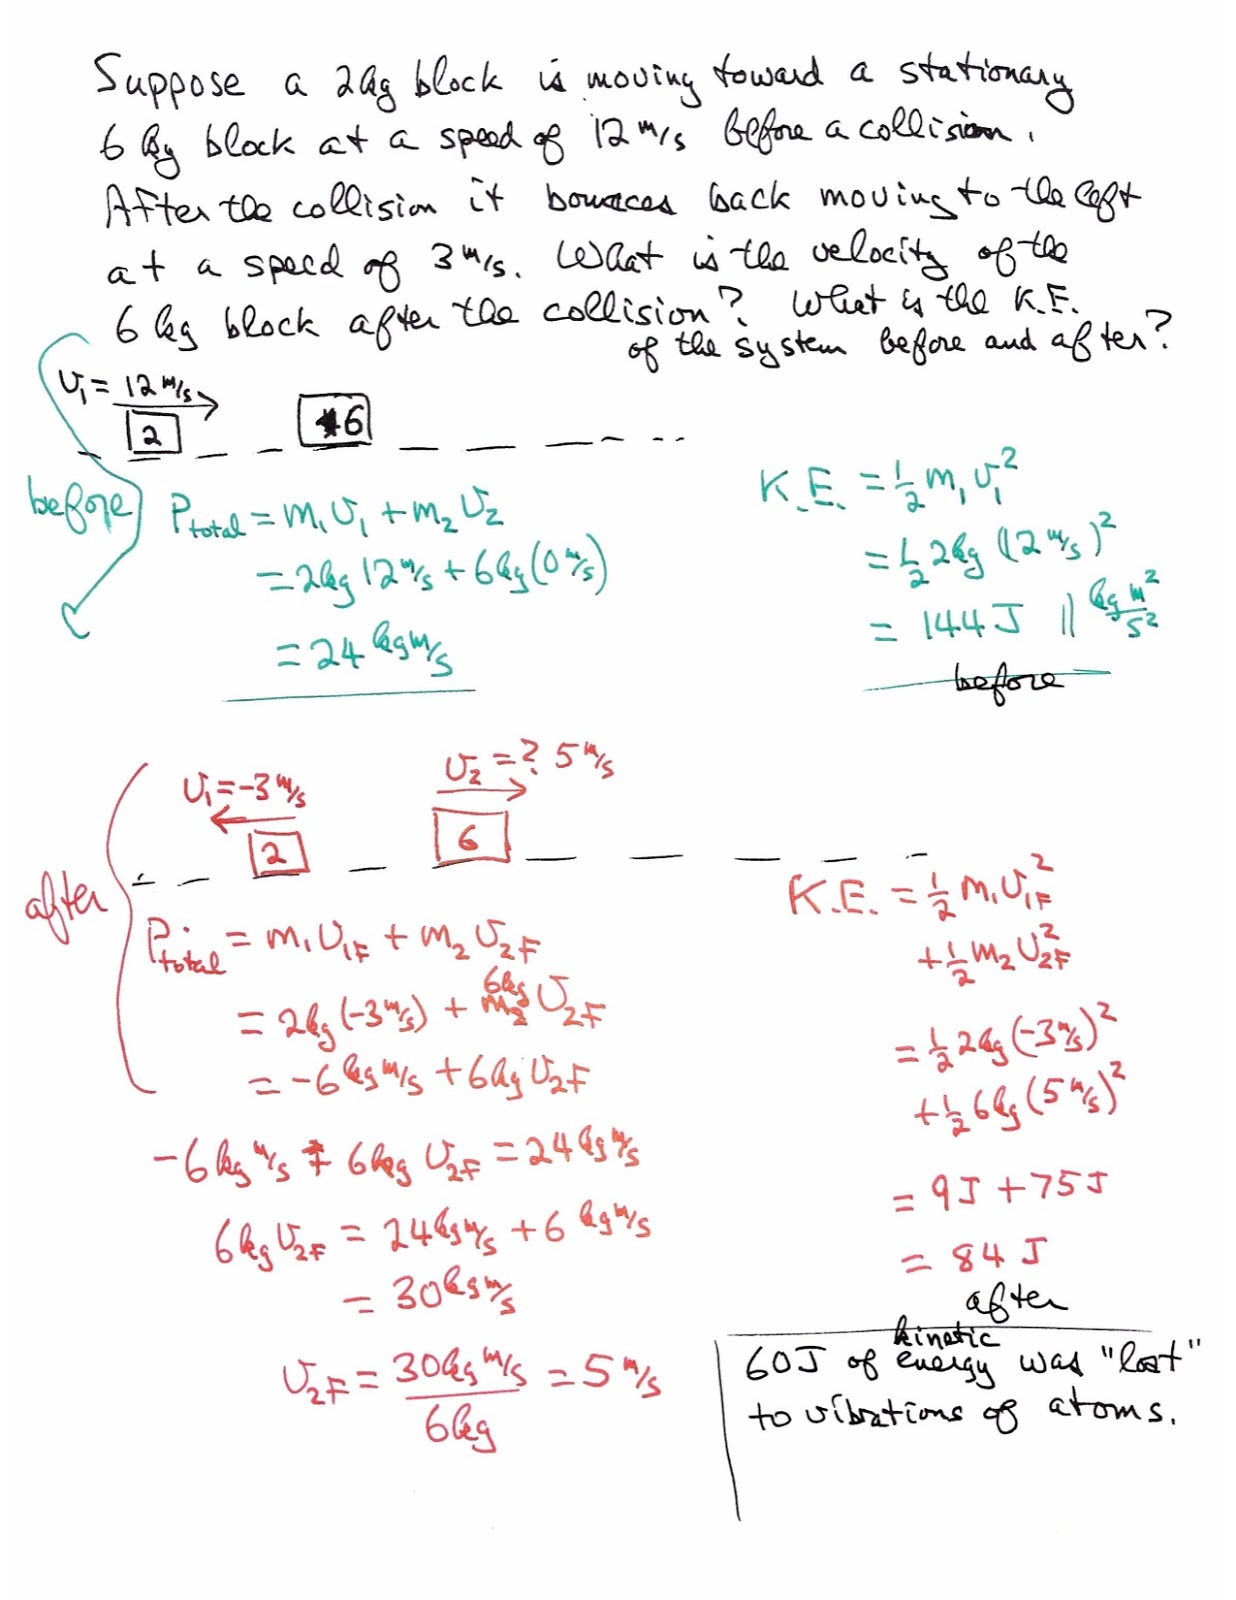 Suppose a 2kg block is moving toward a stationary
6 kg block at a speed of 12 m/s before a collision.
After the collision it bounces back moving to the left
at a speed of 3 m/s. What is the velocity of the
6 kg block after the collision? What is the K.E.
of the system before and after?
v₁ = 12 m/s
2
6
before
P_total = m₁v₁ + m₂v₂
= 2kg 12 m/s + 6kg (0 m/s)
= 24 kg m/s
K.E. = ½ m₁v₁²
= ½ 2kg (12 m/s)²
= 144 J || kg m²/s²
before
after
v₁ = -3 m/s
2
v₂ = ? 5 m/s
6
P_total = m₁v₁F + m₂v₂F
= 2kg (-3 m/s) + 6kg v₂F
= -6 kg m/s + 6kg v₂F
-6 kg m/s + 6kg v₂F = 24 kg m/s
6kg v₂F = 24 kg m/s + 6 kg m/s
= 30 kg m/s
v₂F = 30 kg m/s / 6kg = 5 m/s
K.E. = ½ m₁v₁F²
+ ½ m₂v₂F²
= ½ 2kg (-3 m/s)²
+ ½ 6kg (5 m/s)²
= 9J + 75J
= 84 J
after
60J of kinetic energy was "lost"
to vibrations of atoms.